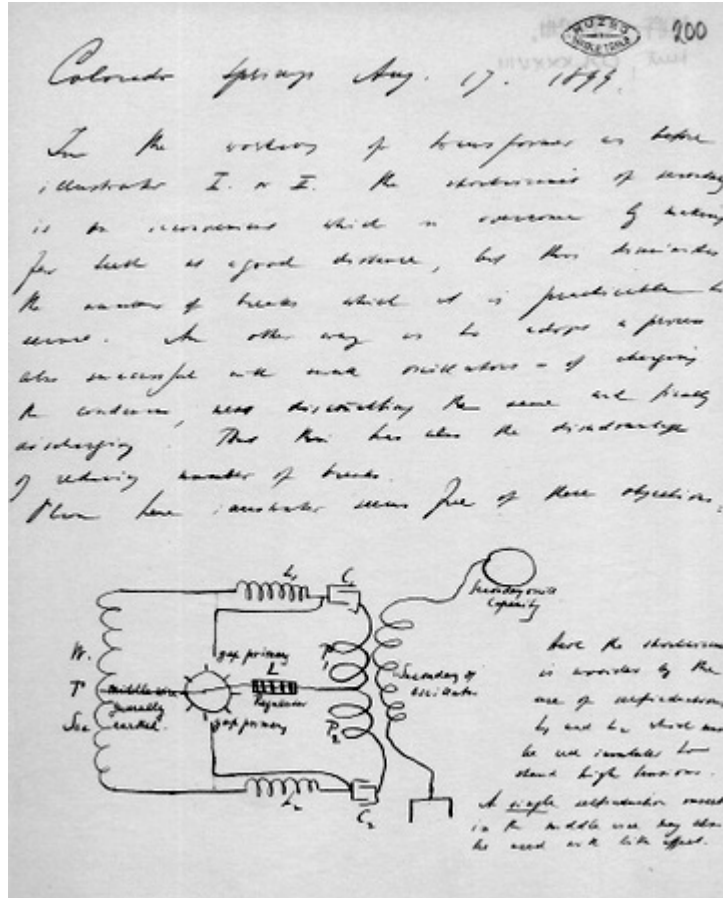 MUZEJ
NIKOLE TESLE
200
Colorado Springs Aug. 17. 1899
In the working of transformer as before
illustrated I. or II. the shortcircuit of secondary
is an inconvenience which is overcome by making
at a good distance, but this diminishes
the number of breaks which it is practicable to
secure. An other way is to adopt a process
also successful with small oscillators - of charging
the condenser, next disconnecting the same and finally
discharging. This has also the disadvantage
of reducing number of breaks.
Plan here illustrated seems free of these objections.
L₁
C₁
Secondary
Capacity
W.
T
Sec
gap primary
L
Regulator
middle wire
generally
earthed.
gap primary
P₁
P₂
Secondary of
Oscillator
L₂
C₂
here the shortcircuit
is avoided by the
use of selfinductions
L₁ and L₂ which must
be well insulated to
stand high tensions.
A single selfinduction
in the middle wire may also
be used with like effect.